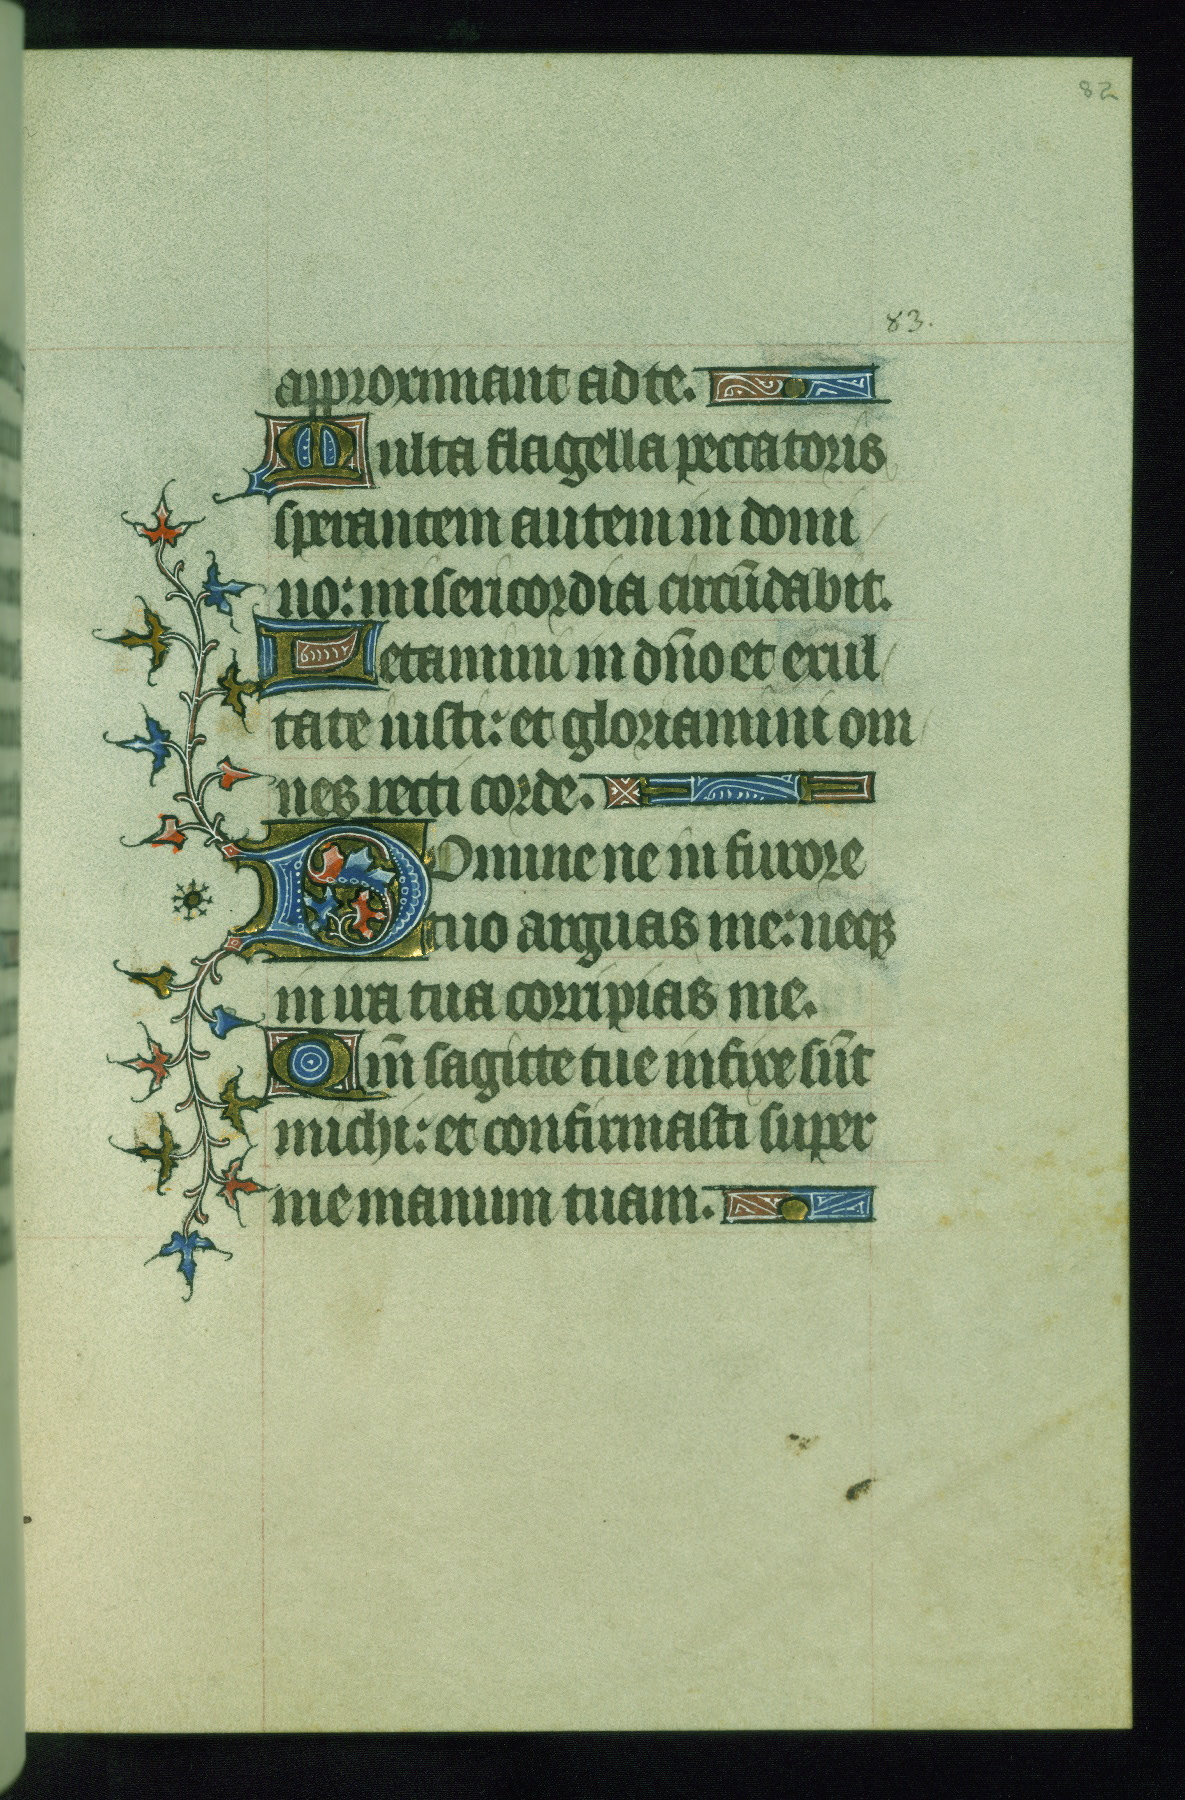 82
83.
approximant ad te.
Multa flagella peccatoris
sperantem autem in domi
no: misericordia circūdabit.
Letamini in dn̄o et exul
tate iusti: et gloriamini om
nes recti corde.
Domine ne in furore
tuo arguas me: neqꝫ
in ira tua corripias me.
Qm̄ sagitte tue infixe sūt
michi: et confirmasti super
me manum tuam.